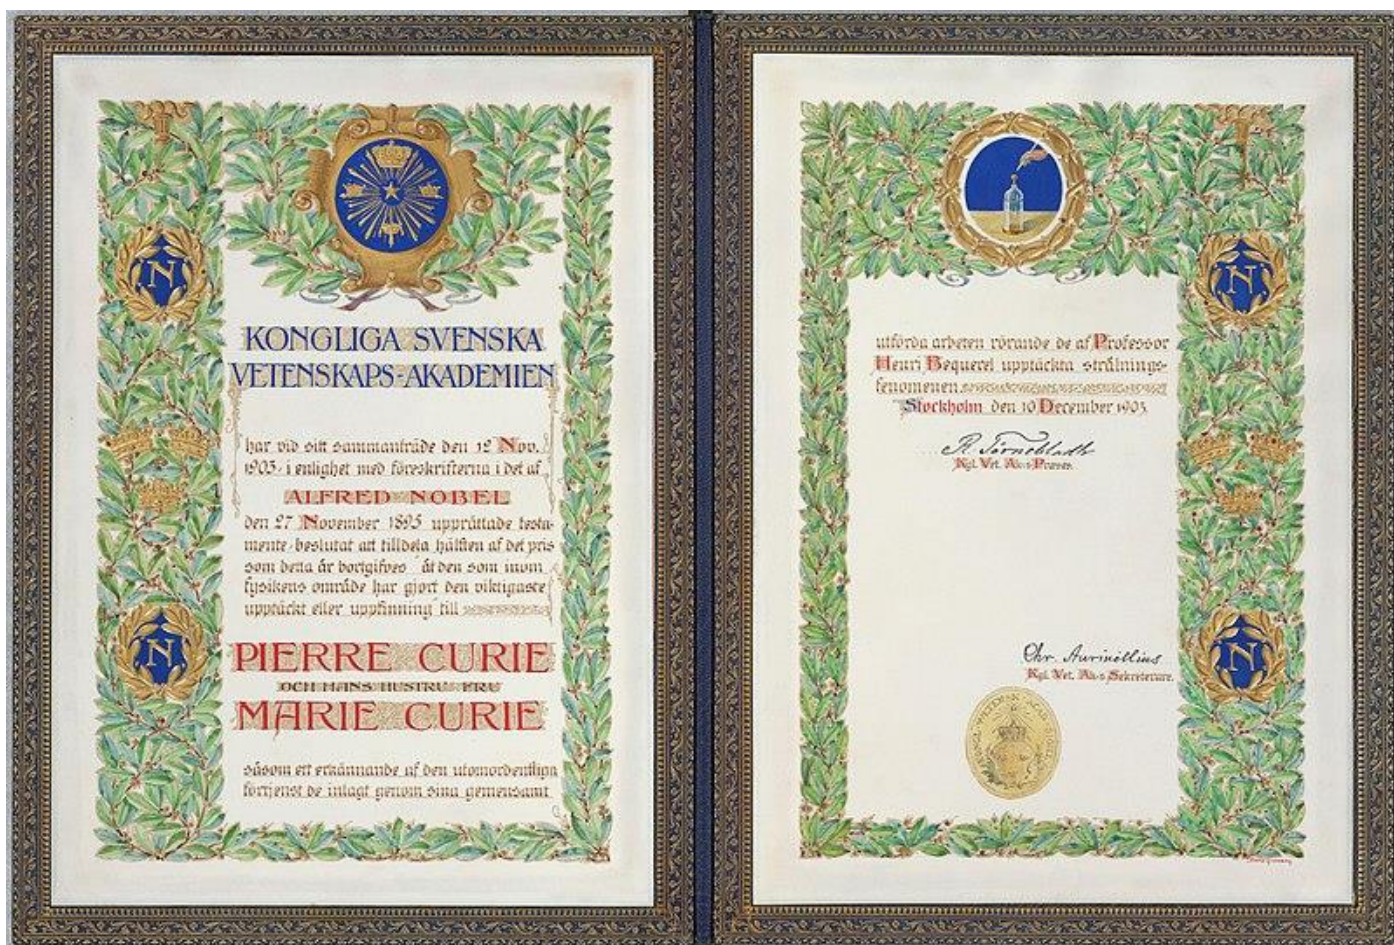 KONGLIGA SVENSKA
VETENSKAPS-AKADEMIEN
har vid sitt sammanträde den 12 Nov.
1903 i enlighet med föreskrifterna i det af
ALFRED NOBEL
den 27 November 1895 upprättade testa-
mente beslutat att tilldela hälften af det pris
som detta år bortgifves åt den som inom
fysikens område har gjort den viktigaste
upptäckt eller uppfinning till
PIERRE CURIE
OCH HANS HUSTRU FRU
MARIE CURIE
såsom ett erkännande af den utomordentliga
förtjenst de inlagt genom sina gemensamt
N
N
utförda arbeten rörande de af Professor
Henri Bequerel upptäckta strålnings-
fenomenen.
Stockholm den 10 December 1903.
R. Törnebladh
Kgl. Vet. Ak:s Præses.
Chr. Aurivillius
Kgl. Vet. Ak:s Sekreterare.
N
N